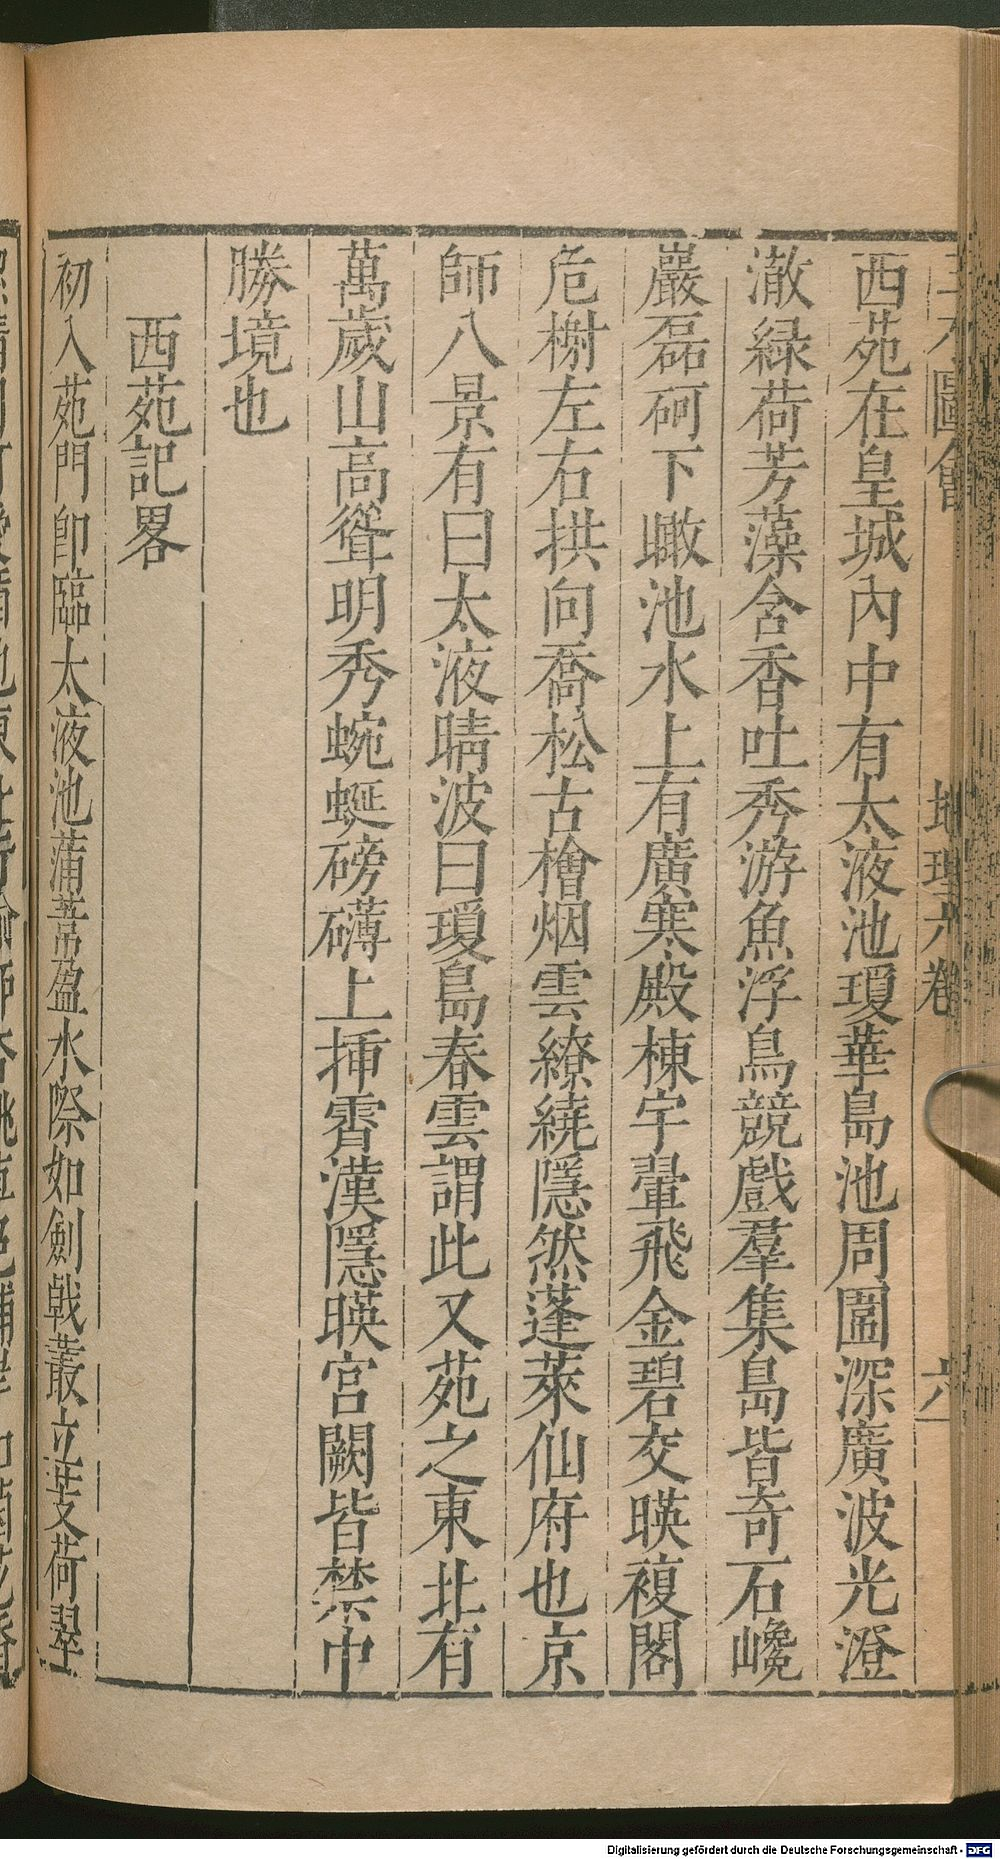 三才圖會 地理六卷 六
西苑在皇城內中有太液池瓊華島池周圍深廣波光澄
澈緑荷芳藻含香吐秀游魚浮鳥競戲羣集島皆奇石巉
巖磊砢下瞰池水上有廣寒殿棟宇翬飛金碧交暎複閣
危榭左右拱向喬松古檜烟雲繚繞隱然蓬萊仙府也京
師八景有曰太液晴波曰瓊島春雲謂此又苑之東北有
萬歲山高聳明秀蜿蜒磅礴上揷霄漢隱暎宮闕皆禁中
勝境也
西苑記畧
初入苑門卽臨太液池蒲葦盈水際如劍戟叢立芰荷翠
Digitalisierung gefördert durch die Deutsche Forschungsgemeinschaft - DFG